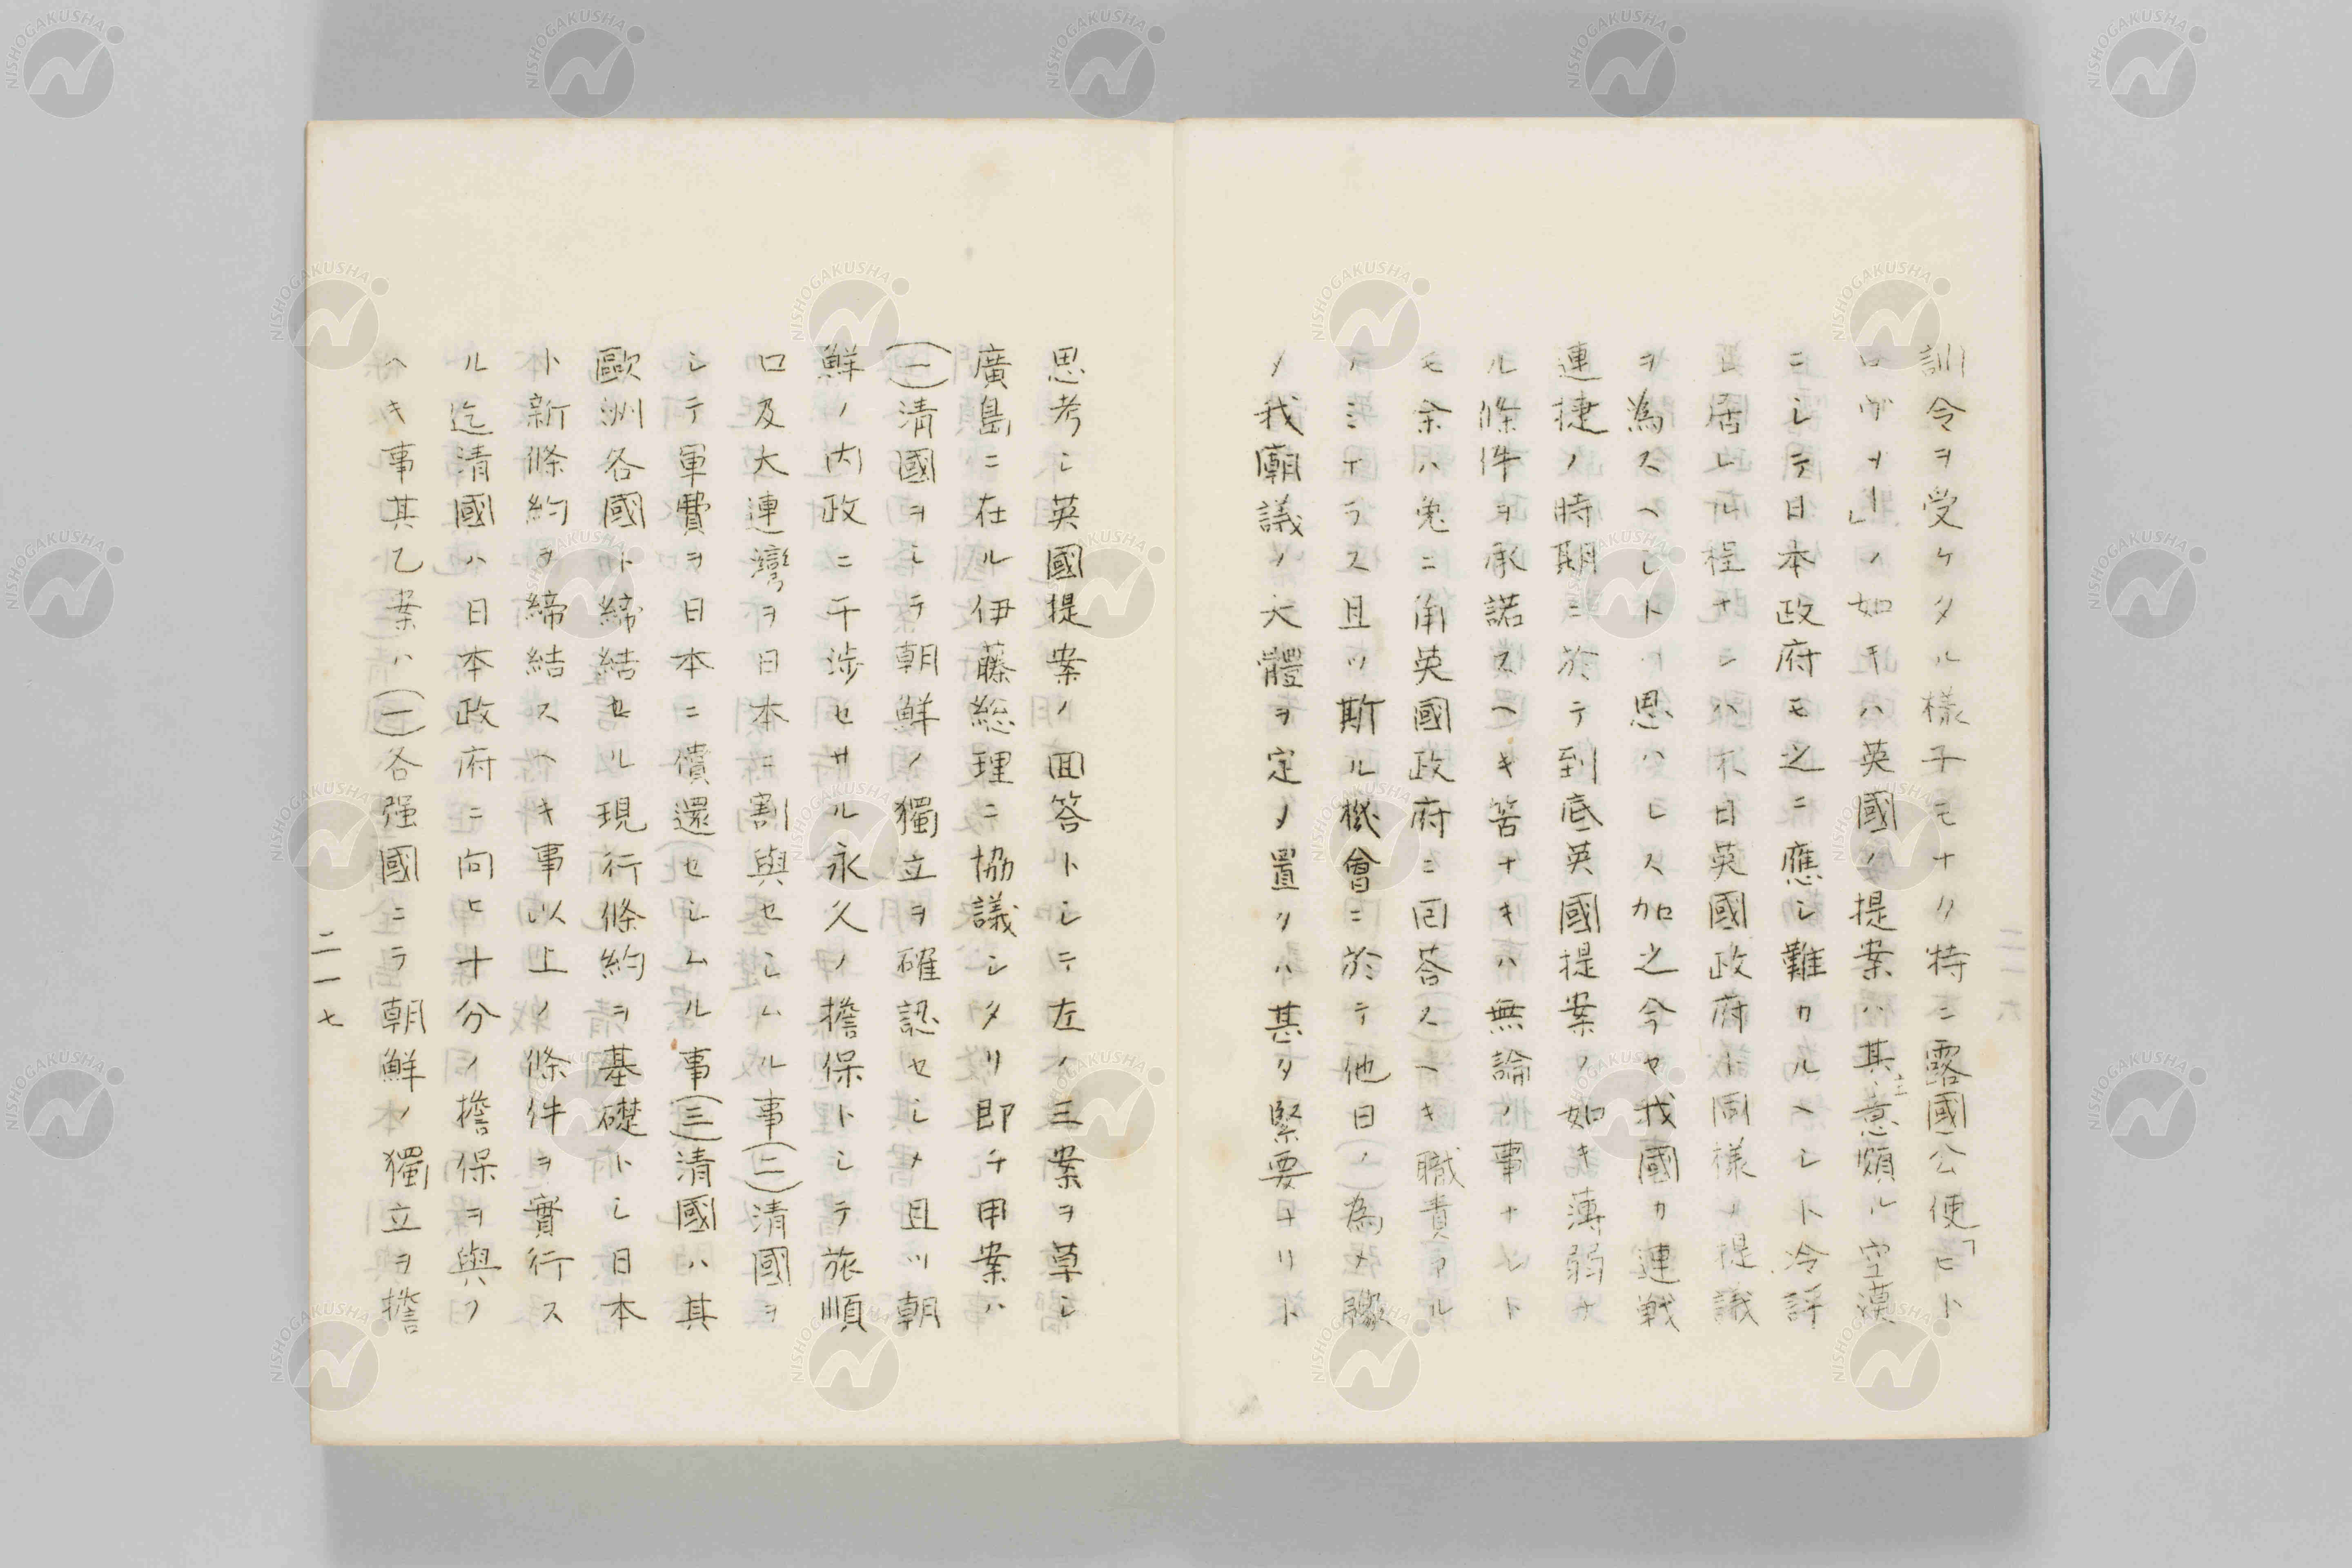 訓令ヲ受ケタル様子モナク特ニ露國公使「ヒト
ロヴオー」ノ如キハ英國ノ提案ハ其主意頗ル空漠
ニシテ日本政府モ之ニ應シ難カルヘシト冷評
シ居レル程ナレハ不日英國政府ト同様ノ提議
ヲ為スヘシトハ思ハレス加之今ヤ我國カ連戦
連捷ノ時期ニ於テ到底英國提案ノ如キ薄弱ナ
ル條件ヲ承諾スヘキ筈ナキハ無論ノ事ナレト
モ余ハ兎ニ角英國政府ニ回答スヘキ職責アル
ノミナラス且ツ斯ル機會ニ於テ他日ノ為メ豫
メ我廟議ノ大體ヲ定メ置クハ甚タ緊要ナリト
思考シ英國提案ノ回答トシテ左ノ三案ヲ草シ
廣島ニ在ル伊藤総理ニ協議シタリ即チ甲案ハ
(一)清國ヲシテ朝鮮ノ獨立ヲ確認セシメ且ツ朝
鮮ノ内政ニ干渉セサル永久ノ擔保トシテ旅順
口及大連灣ヲ日本ニ割與セシムル事(二)清國ヲ
シテ軍費ヲ日本ニ償還セシムル事(三)清國ハ其
歐洲各國ト締結セル現行條約ヲ基礎トシ日本
ト新條約ヲ締結スヘキ事以上ノ條件ヲ實行ス
ル迄清國ハ日本政府ニ向ヒ十分ノ擔保ヲ與フ
ヘキ事其乙案ハ(一)各强國ニテ朝鮮ノ獨立ヲ擔
二一七
NISHOGAKUSHA